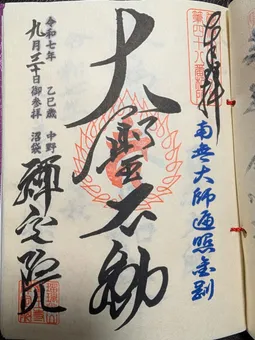 奉拝
第四十八番
南無大師遍照金剛
大聖不動
中野
沼袋
乙巳歳
御参拝
令和七年
九月三十日
禅定院